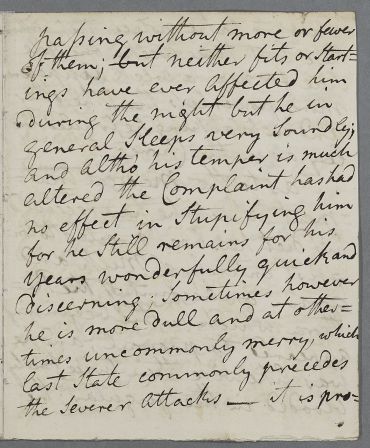 passing without more or fewer
of them; but neither fits or Start=
ings have ever affected him
during the night but he in
general Sleeps very Soundly;
and altho his temper is much
altered the Complaint has had
no effect in Stupifying him
for he Still remains for his
years wonderfully quick and
discerning; Sometimes however
he is more dull and at other=
times uncommonly merry, which
last State commonly precedes
the Severer Attacks — it is pro=